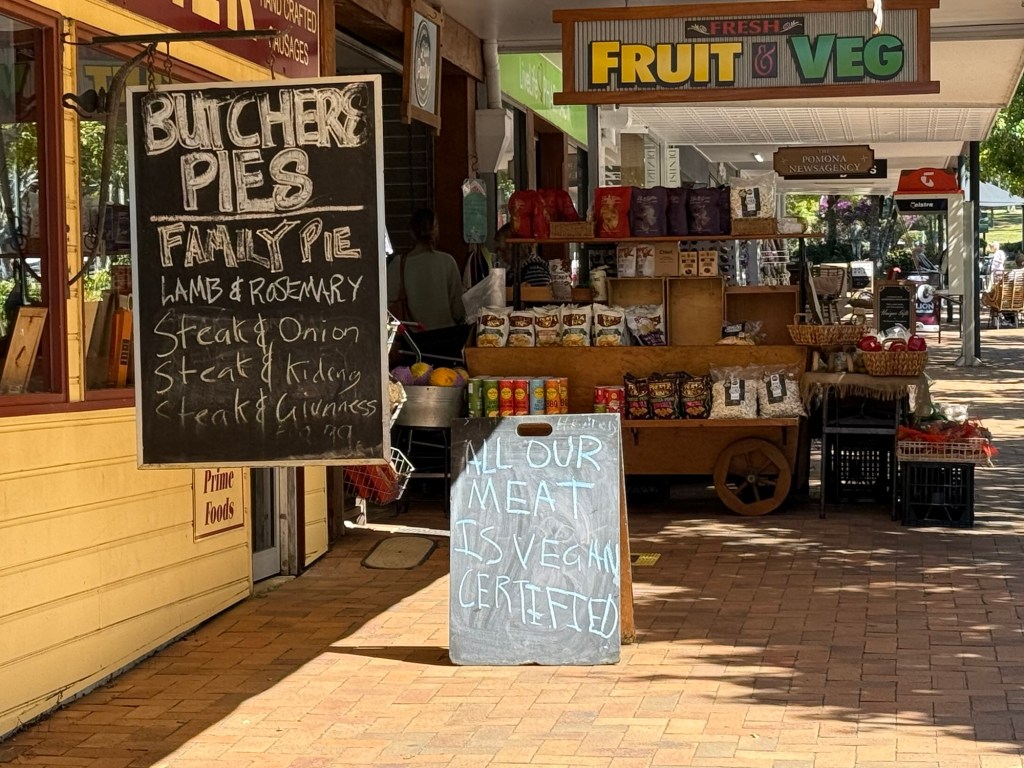 HAND CRAFTED
SAUSAGES
BUTCHERS
PIES
FAMILY PIE
LAMB & ROSEMARY
Steak & Onion
Steak & Kideny
Steak & Giunness
Prime
Foods
ALL OUR
MEAT
IS VEGAN
CERTIFIED
FRESH
FRUIT & VEG
THE
POMONA
NEWSAGENCY
Telstra